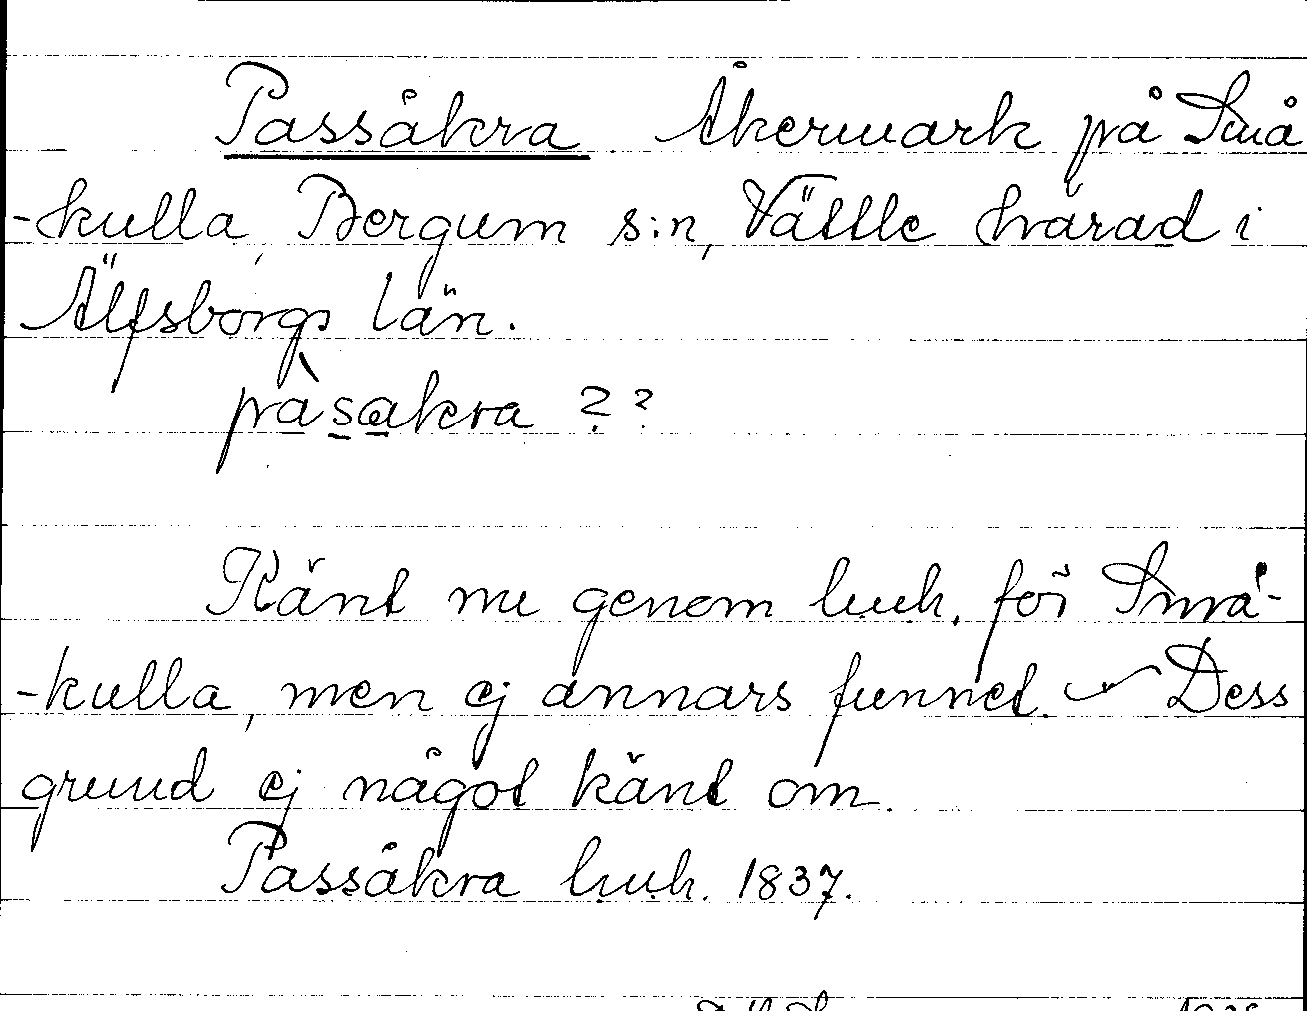 Passåkra Åkermark på Små
-kulla, Bergum s:n, Vättle härad i
Älfsborgs län.
pàsakra ??
Känt nu genom huh. för Små-
-kulla, men ej annars funnet. Dess
grund ej något känt om.
Passåkra huh. 1837.